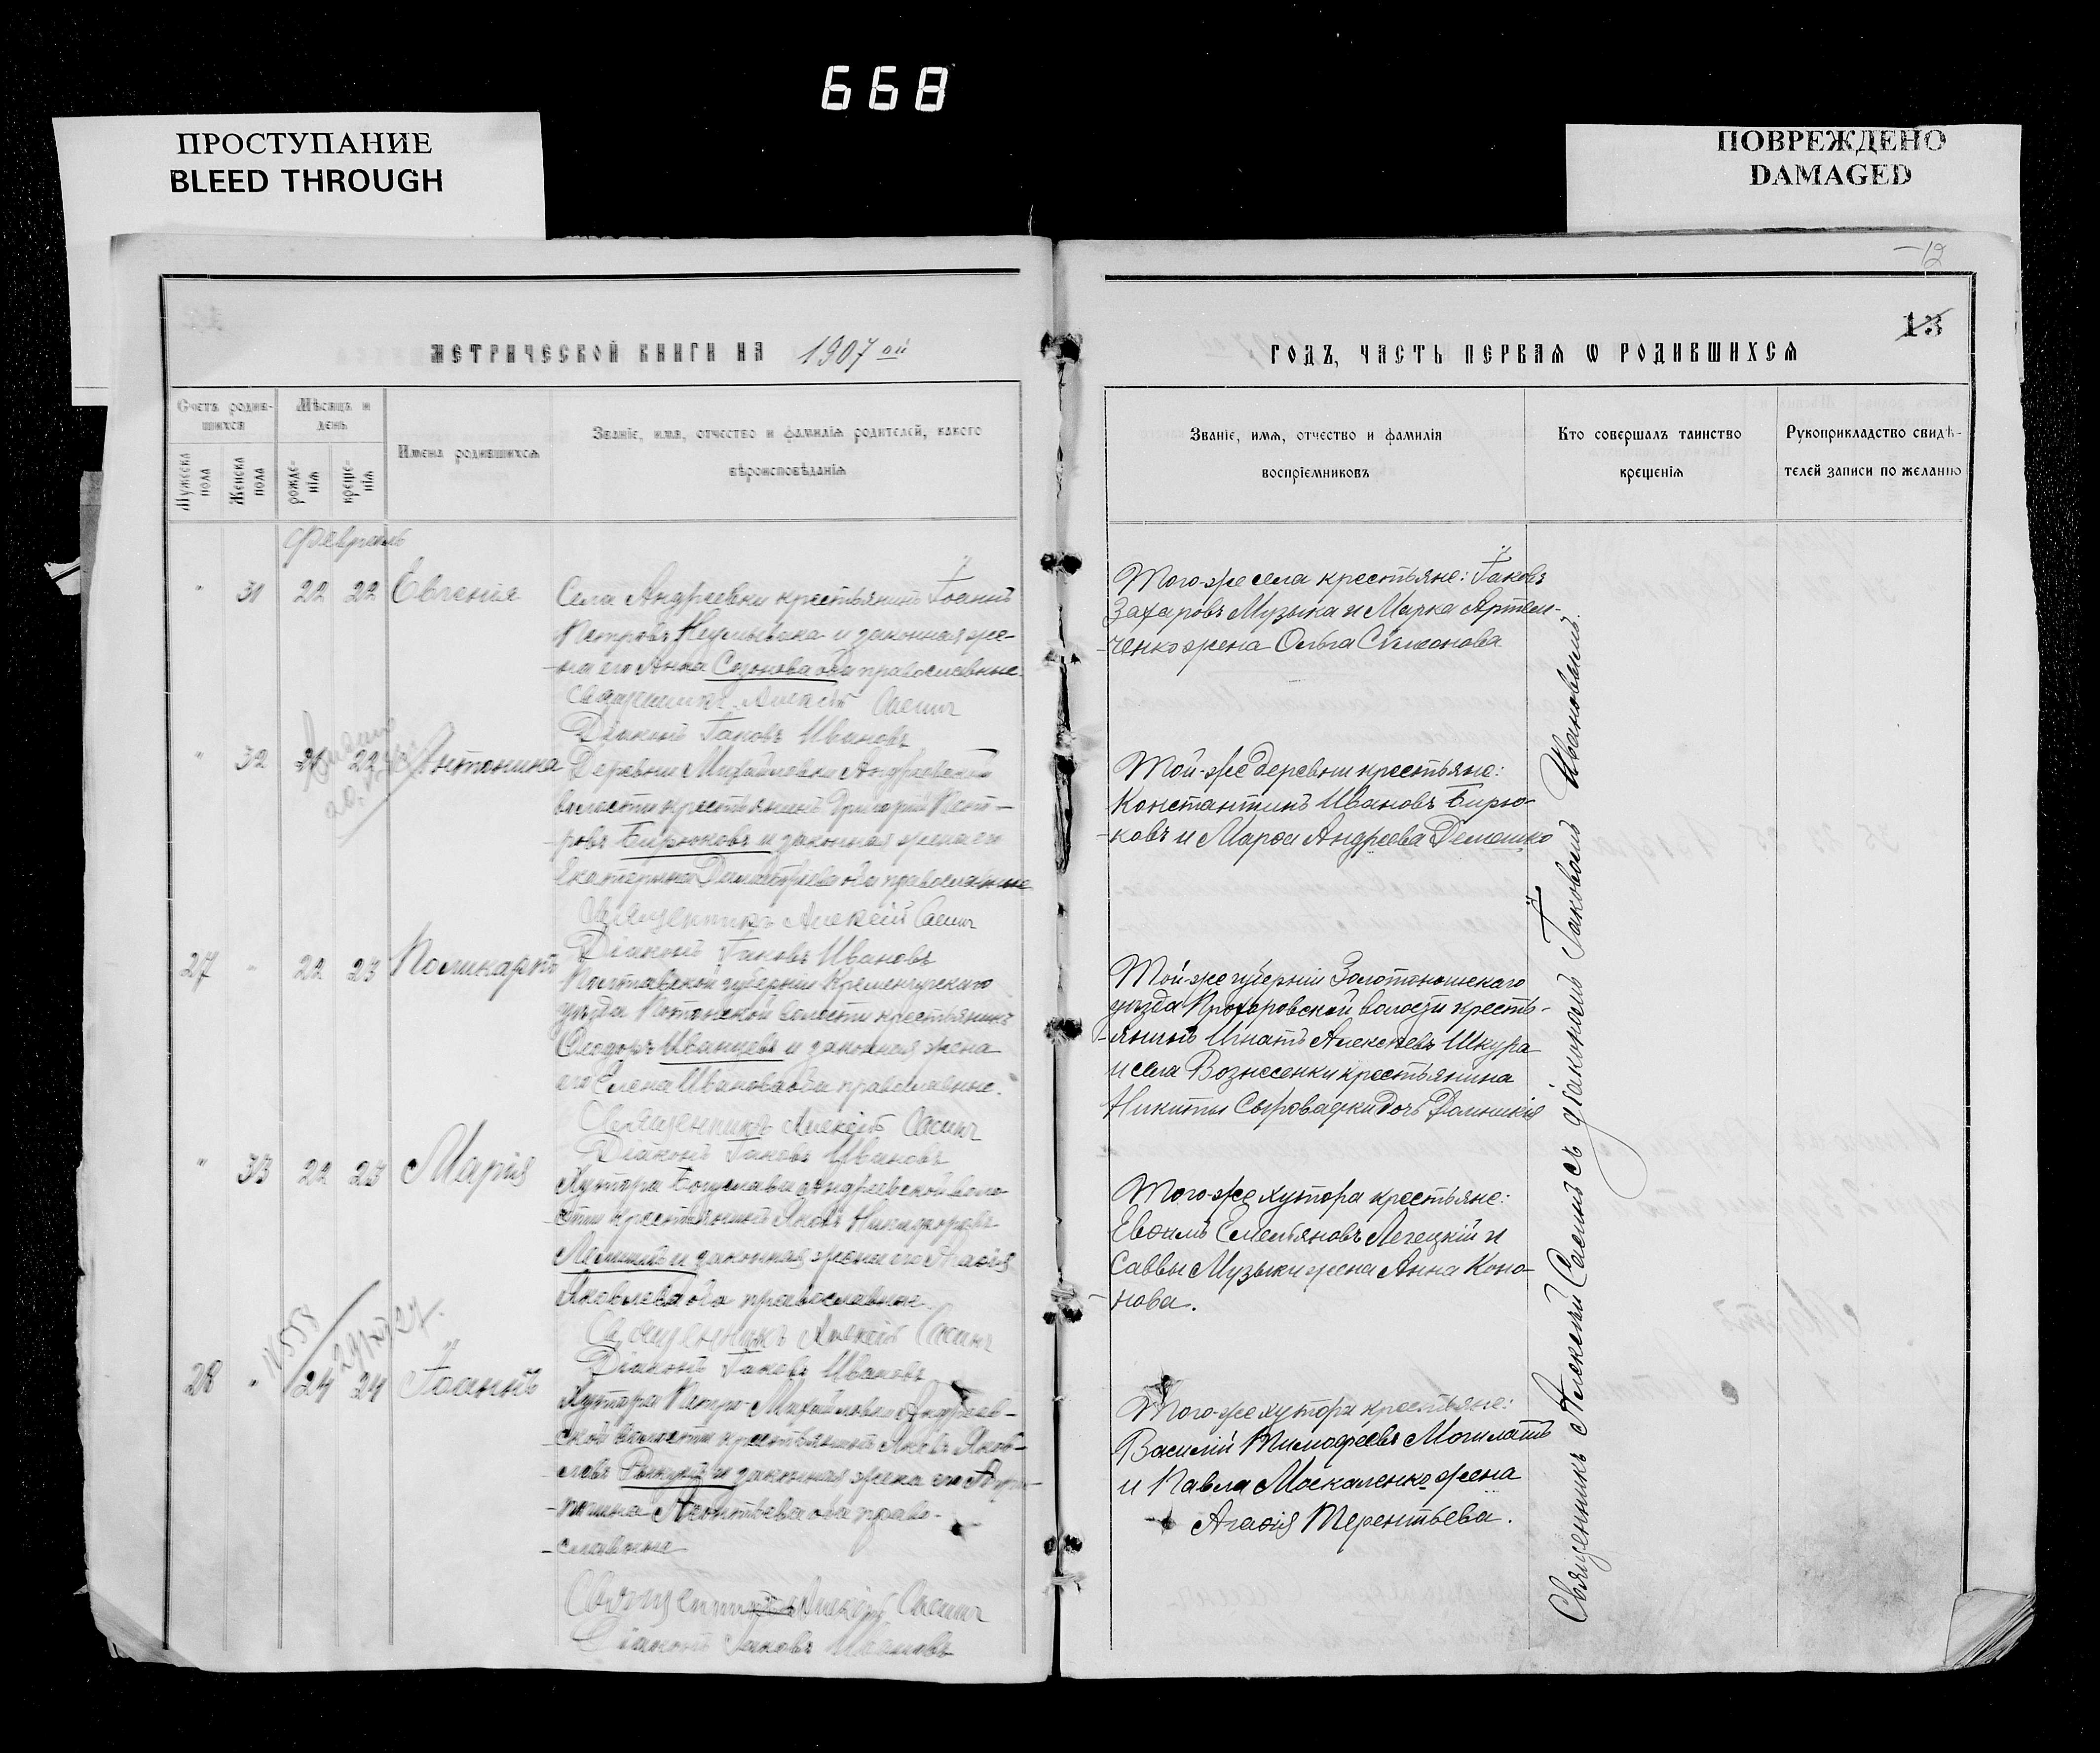 668
ПРОСТУПАНИЕ
BLEED THROUGH
ПОВРЕЖДЕНО
DAMAGED
12
13
МЕТРИЧЕСКОЙ КНИГИ НА 1907 ой
Счетъ родив-
шихся
Мѣсяцъ и
день
Мужеска
пола
Женска
пола
рожде-
нія
креще-
нія
Имена родившихся
Званіе, имя, отчество и фамилія родителей, какого
вѣроисповѣданія
Февраль
" 31 22 22 Евгенія
Села Андреевки крестьянинъ Іоаннъ
Петровъ и законная же-
-на его Анна Созонова оба православные.
Священникъ Алексѣй Сасинъ
Діаконъ Іаковъ Ивановъ
" 32 21 22 Антонина
Деревни Михайловки Андреевской
волости крестьянинъ Григорій Пет-
-ровъ Бирюковъ и законная жена его
Екатерина Димитріева оба православные
Священникъ Алексѣй Сасинъ
Діаконъ Іаковъ Ивановъ
27 " 22 23 Поликарпъ
Полтавской губерніи Кременчугскаго
уѣзда Потокской волости крестьянинъ
Ѳеодоръ Иванцевъ и законная жена
его Елена Иванова оба православные.
Священникъ Алексѣй Сасинъ
Діаконъ Іаковъ Ивановъ
" 33 22 23 Марія
Хутора Богуслава Андреевской воло-
-сти крестьянинъ Яковъ Никифоровъ
и законная жена его Агаѳія
Яковлева оба православные.
Священникъ Алексѣй Сасинъ
Діаконъ Іаковъ Ивановъ
N 558
28 " 24 24 Іоаннъ
Хутора Петро-Михайловки Андреев-
-ской волости крестьянинъ Яковъ Яков-
-левъ и законная жена его Агрип-
-пина Леонтьева оба право-
-славные
Священникъ Алексѣй Сасинъ
Діаконъ Іаковъ Ивановъ
ГОДЪ, ЧАСТЬ ПЕРВАЯ Ѡ РОДИВШИХСЯ
Званіе, имя, отчество и фамилія
воспріемниковъ
Кто совершалъ таинство
крещенія
Рукоприкладство свидѣ-
телей записи по желанію
Того-же села крестьяне: Іаковъ
Захаровъ Музыка и Марка Артем-
-ченко жена Ольга Сѵмеонова.
Той-же деревни крестьяне:
Константинъ Ивановъ Бирю-
-ковъ и Марѳа Андреева Демешко
Той-же губерніи Золотоношскаго
уѣзда Прохоровской волости кресть-
-янинъ Игнатъ Алексѣевъ Шкура
и села Вознесенки крестьянина
Никиты Сыровадки дочь Домникія
Того-же хутора крестьяне:
Евѳимъ Емельяновъ Легецкій и
Саввы Музыки жена Анна Коно-
нова.
Того-же хутора крестьяне:
Василій Тимофеевъ Могилатъ
и Павла Москаленко жена
Агаѳія Терентьева.
Священникъ Алексѣй Сасинъ съ діакономъ Іаковомъ Ивановымъ.